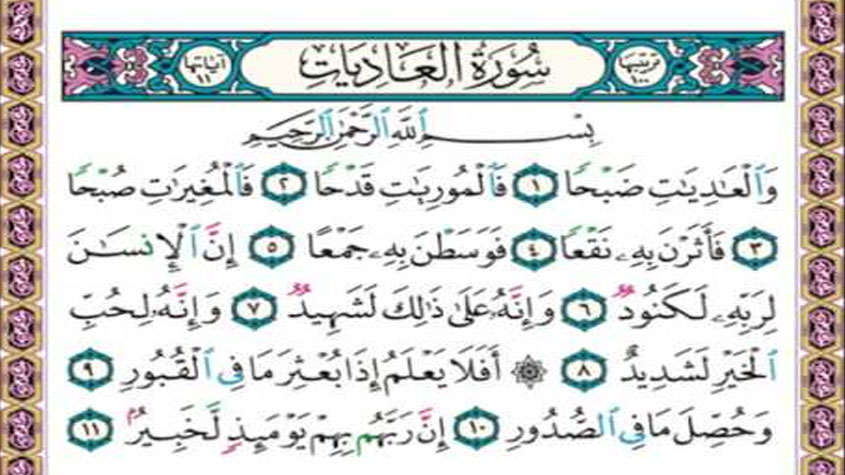 ترتيبها ١٠٠ سُورَةُ العَادِيَاتِ آياتها ١١
بِسْمِ ٱللَّهِ ٱلرَّحْمَٰنِ ٱلرَّحِيمِ
وَٱلْعَٰدِيَٰتِ ضَبْحًا ١ فَٱلْمُورِيَٰتِ قَدْحًا ٢ فَٱلْمُغِيرَٰتِ صُبْحًا
٣ فَأَثَرْنَ بِهِۦ نَقْعًا ٤ فَوَسَطْنَ بِهِۦ جَمْعًا ٥ إِنَّ ٱلْإِنسَٰنَ
لِرَبِّهِۦ لَكَنُودٌ ٦ وَإِنَّهُۥ عَلَىٰ ذَٰلِكَ لَشَهِيدٌ ٧ وَإِنَّهُۥ لِحُبِّ
ٱلْخَيْرِ لَشَدِيدٌ ٨ ۞ أَفَلَا يَعْلَمُ إِذَا بُعْثِرَ مَا فِى ٱلْقُبُورِ ٩
وَحُصِّلَ مَا فِى ٱلصُّدُورِ ١٠ إِنَّ رَبَّهُم بِهِمْ يَوْمَئِذٍ لَّخَبِيرٌۢ ١١